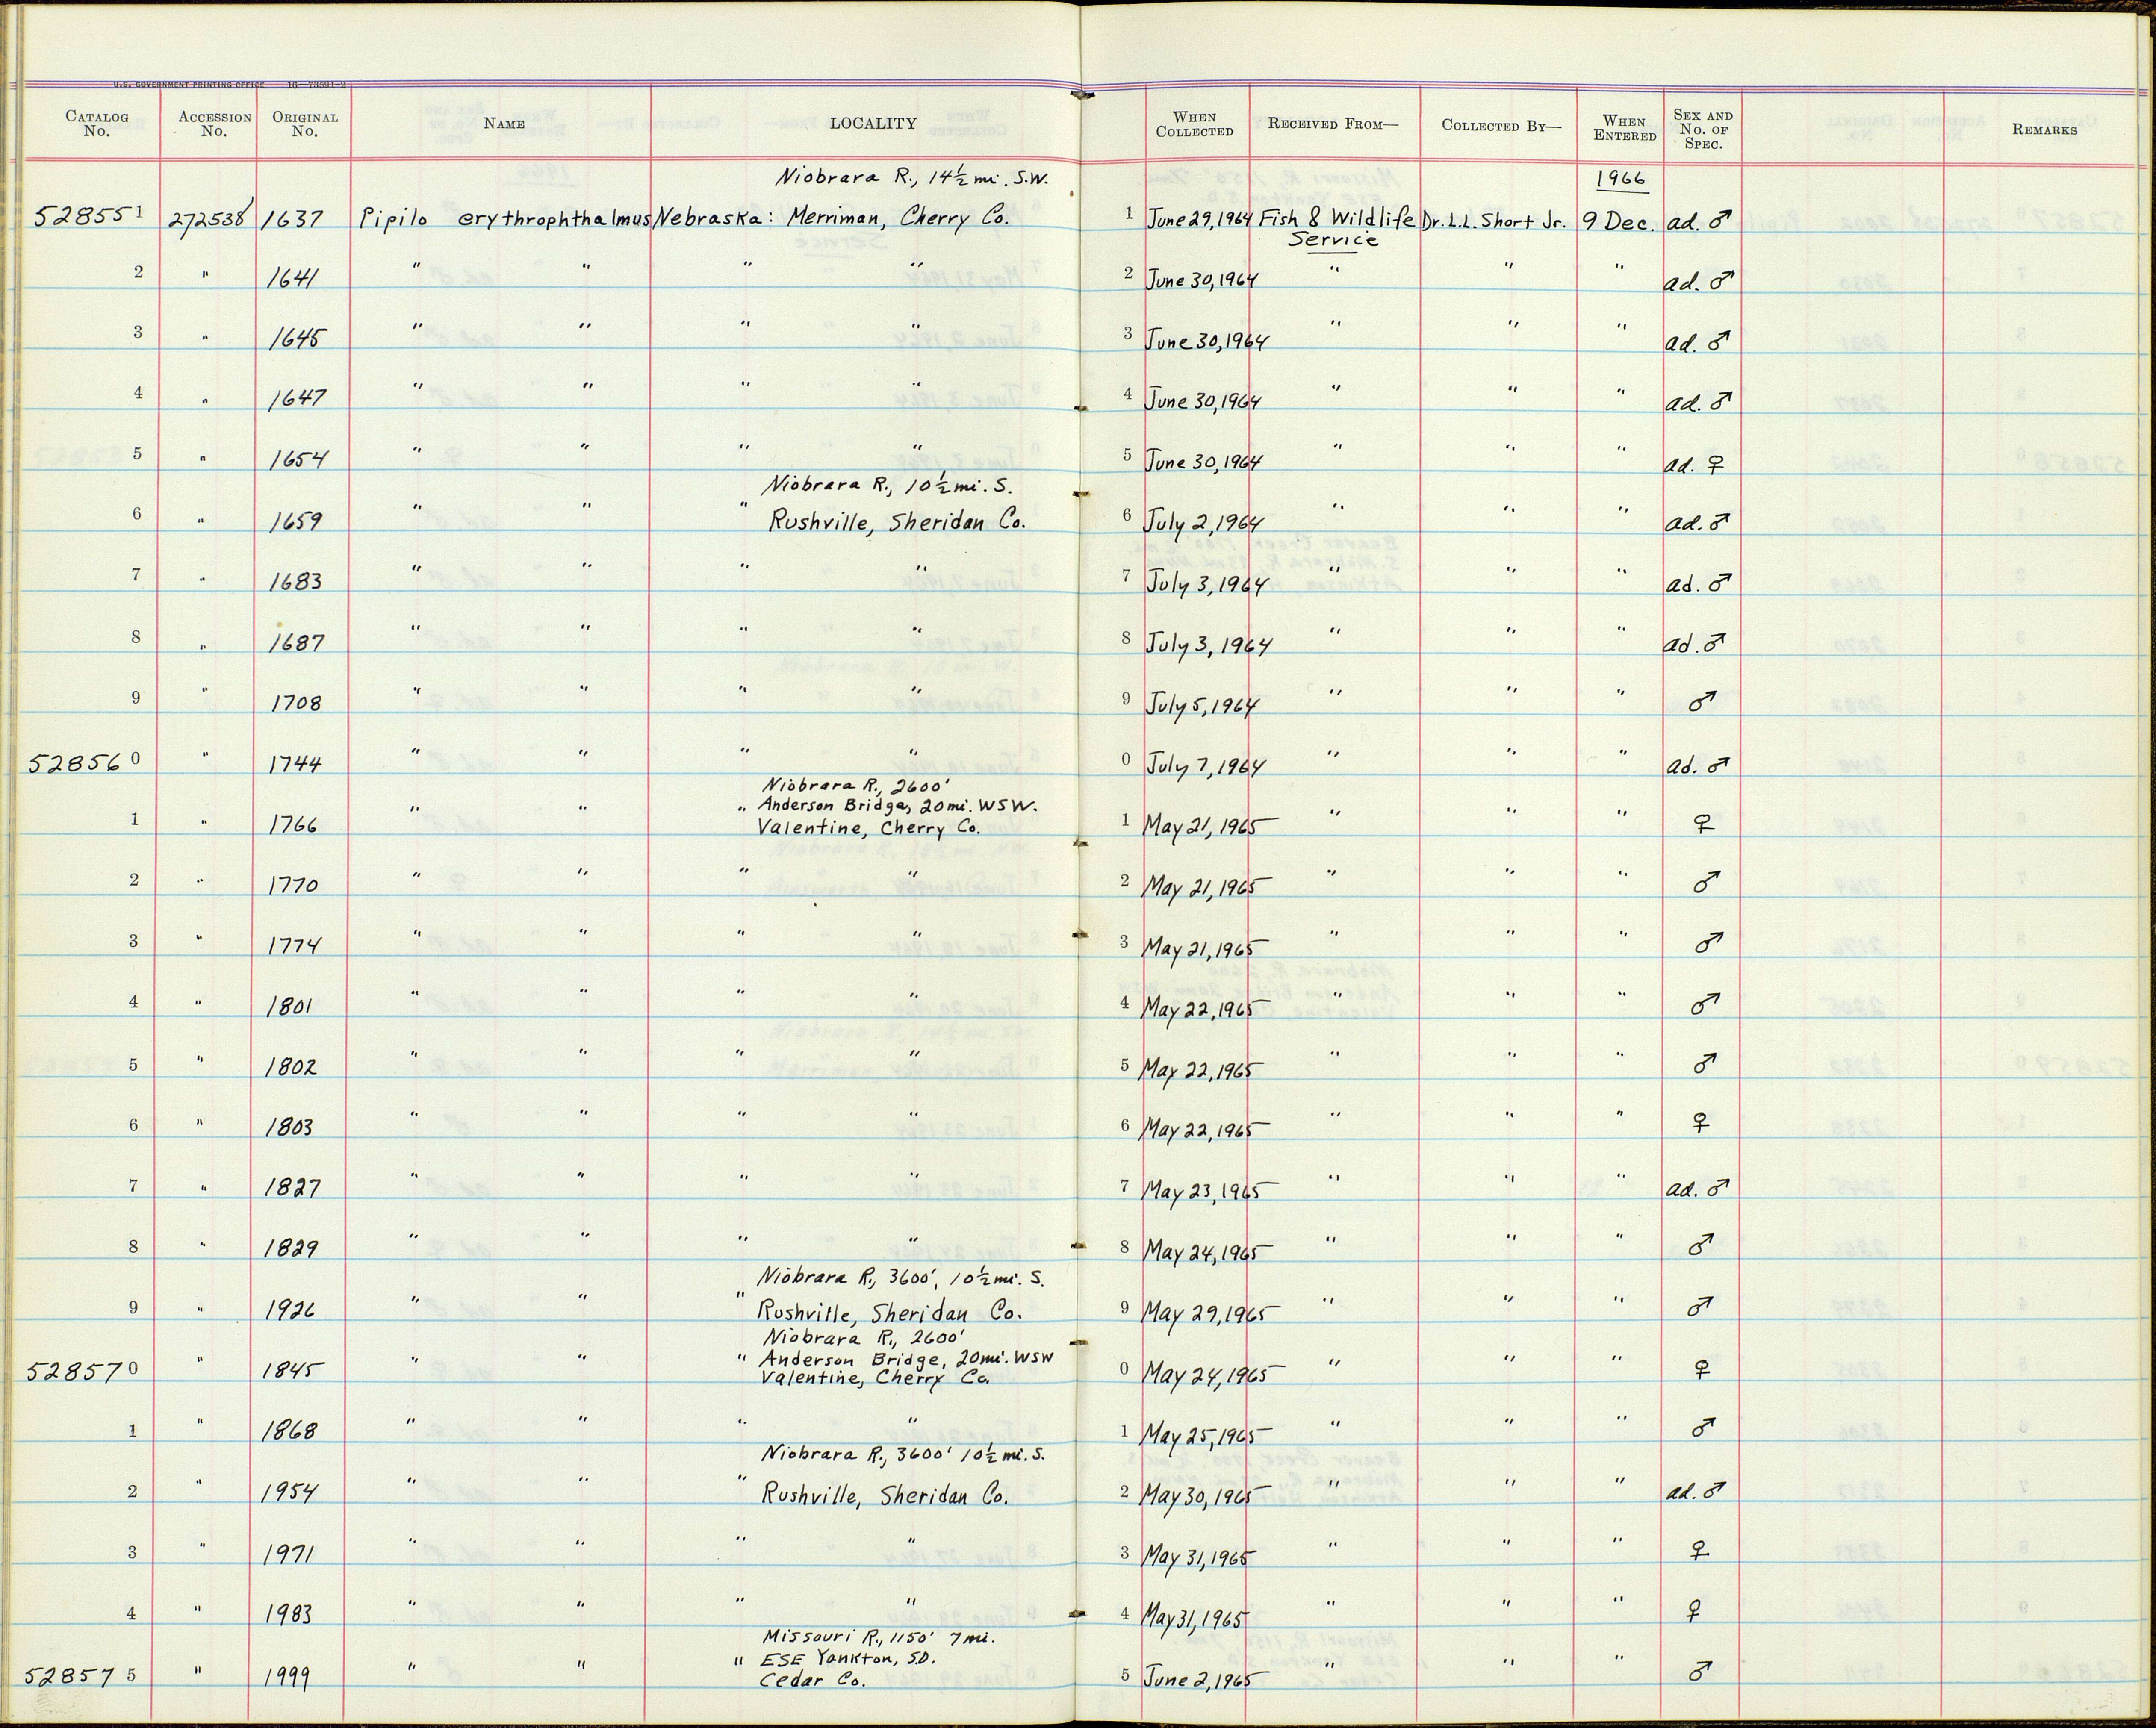 U.S. GOVERNMENT PRINTING OFFICE 16—73591-2
CATALOG No. ACCESSION No. ORIGINAL No. NAME LOCALITY WHEN COLLECTED RECEIVED FROM— COLLECTED BY— WHEN ENTERED SEX AND No. OF SPEC. REMARKS
Niobrara R., 14½ mi. S.W. 1966
528551 272538 1637 Pipilo erythrophthalmus Nebraska: Merriman, Cherry Co. 1 June 29, 1964 Fish & Wildlife Dr. L.L. Short Jr. 9 Dec. ad. ♂
Service
2 " 1641 " " " " 2 June 30, 1964 " " " ad. ♂
3 " 1645 " " " " 3 June 30, 1964 " " " ad. ♂
4 " 1647 " " " " 4 June 30, 1964 " " " ad. ♂
5 " 1654 " " " " 5 June 30, 1964 " " " ad. ♀
Niobrara R., 10½ mi. S.
6 " 1659 " " " Rushville, Sheridan Co. 6 July 2, 1964 " " " ad. ♂
7 " 1683 " " " " 7 July 3, 1964 " " " ad. ♂
8 " 1687 " " " " 8 July 3, 1964 " " " ad. ♂
9 " 1708 " " " " 9 July 5, 1964 " " " ♂
528560 " 1744 " " " " 0 July 7, 1964 " " " ad. ♂
Niobrara R., 2600'
" Anderson Bridge, 20 mi. WSW.
1 " 1766 " " Valentine, Cherry Co. 1 May 21, 1965 " " " ♀
2 " 1770 " " " " 2 May 21, 1965 " " " ♂
3 " 1774 " " " " 3 May 21, 1965 " " " ♂
4 " 1801 " " " " 4 May 22, 1965 " " " ♂
5 " 1802 " " " " 5 May 22, 1965 " " " ♂
6 " 1803 " " " " 6 May 22, 1965 " " " ♀
7 " 1827 " " " " 7 May 23, 1965 " " " ad. ♂
8 " 1829 " " " " 8 May 24, 1965 " " " ♂
Niobrara R., 3600', 10½ mi. S.
9 " 1926 " " " Rushville, Sheridan Co. 9 May 29, 1965 " " " ♂
Niobrara R., 2600'
" Anderson Bridge, 20 mi. WSW
528570 " 1845 " " Valentine, Cherry Co. 0 May 24, 1965 " " " ♀
1 " 1868 " " " " 1 May 25, 1965 " " " ♂
Niobrara R., 3600' 10½ mi. S.
2 " 1954 " " " Rushville, Sheridan Co. 2 May 30, 1965 " " " ad. ♂
3 " 1971 " " " " 3 May 31, 1965 " " " ♀
4 " 1983 " " " " 4 May 31, 1965 " " " ♀
Missouri R., 1150' 7 mi.
" ESE Yankton, S.D.
528575 " 1999 " " Cedar Co. 5 June 2, 1965 " " " ♂